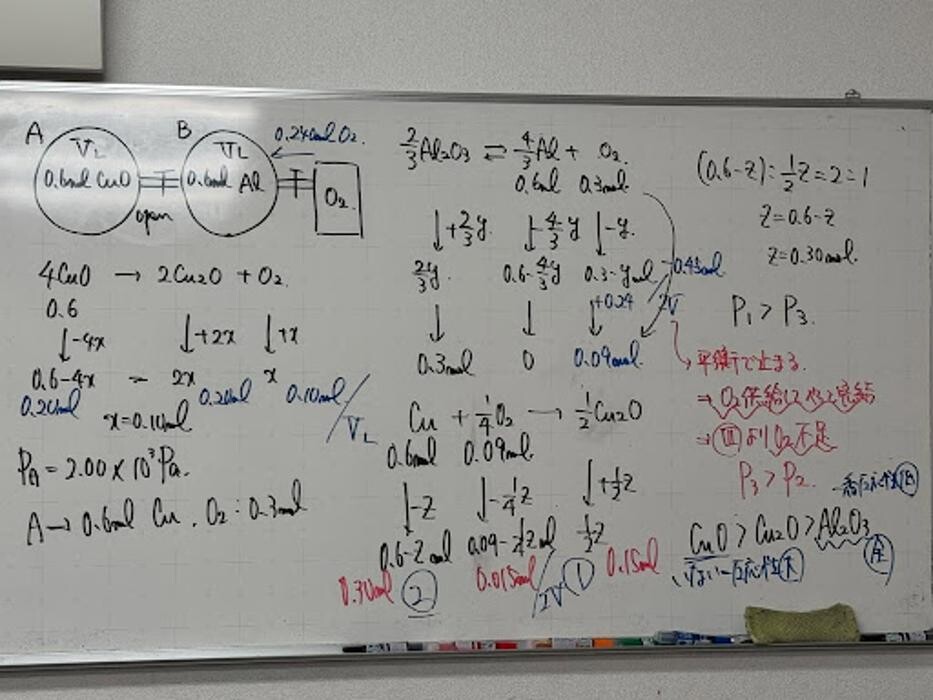 A
V L
0.6mol CuO
open
B
V L
0.6mol Al
0.24mol O₂
O₂
4CuO → 2Cu₂O + O₂
0.6
↓-4x ↓+2x ↓+x
0.6-4x = 2x x
0.20mol 0.20mol 0.10mol/VL
x=0.10mol
P_A = 2.00×10³Pa.
A→0.6mol Cu, O₂: 0.3mol
2/3Al₂O₃ ⇌ 4/3Al + O₂
0.6mol 0.3mol
↓+2/3y ↓-4/3y ↓-y
2/3y 0.6-4/3y 0.3-y mol
↓ ↓ ↓+0.24
0.3mol 0 0.09mol
2V
Cu + 1/4O₂ → 1/2Cu₂O
0.6mol 0.09mol
↓-z ↓-1/4z ↓+1/2z
0.6-z mol 0.09-1/4z mol 1/2z
0.30mol ② 0.015mol/2V ① 0.15mol
(0.6-z):1/2z=2:1
z=0.6-z
z=0.30mol
P₁>P₃
平衡で止まる
⇒O₂供給
よりO₂不足
P₃>P₂
CuO>Cu₂O>Al₂O₃